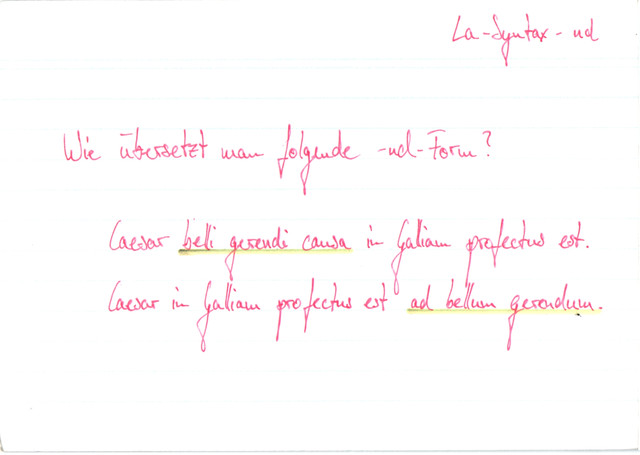 La-Syntax-nd
Wie übersetzt man folgende -nd-Form?
Caesar belli gerendi causa in Galliam profectus est.
Caesar in Galliam profectus est ad bellum gerendum.